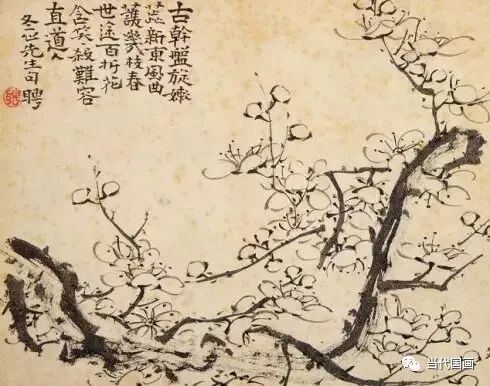 古幹盤旋嫩
蕊新東風曲
護幾枝春
世途百折花
含笑殺難容
直道人
冬心先生句聘
当代国画